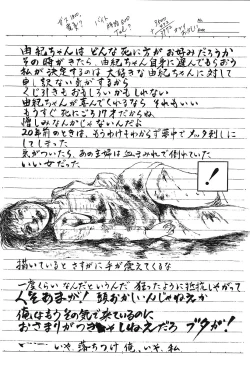 由紀ちゃんは どんな死に方がお好みだろうか
その時がきたら、由紀ちゃん自身に選んでもらおう
私が決定するのは 大好きな由紀ちゃんに対して
申し訳ない気がするから
くじ引きもおもしろいかもしれない
由紀ちゃんが喜んでくれるなら それもいい
もうすぐ死にごろ17才だからね
憎しみなんかじゃないんだよ
20年前のときは、もうわけもわからず夢中でメッタ刺しに
してしまった
気がついたら、あの主婦は血まみれで倒れていた
いい女だった
!
描いていると さすがに手が震えてくるな
一度くらいなんだというんだ 狂ったように抵抗しやがって
頭おかしいんじゃねえか
俺はもうその気で来ているのに
おさまりがつ
しねえだろ ブタが!
いや、落ちつけ 俺、いや、私